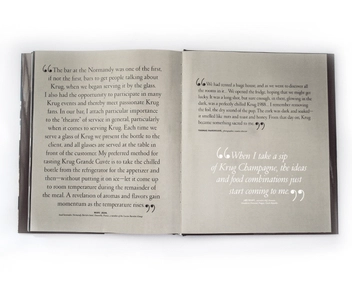 “The bar at the Normandy was one of the first,
if not the first, bars to get people talking about
Krug, when we began serving it by the glass.
I also had the opportunity to participate in many
Krug events and thereby meet passionate Krug
fans. In our bar, I attach particular importance
to the ‘theatre’ of service in general, particularly
when it comes to serving Krug. Each time we
serve a glass of Krug we present the bottle to the
client, and all glasses are served at the table in
front of the customer. My preferred method for
tasting Krug Grande Cuvée is to take the chilled
bottle from the refrigerator for the appetizer and
then—without putting it on ice—let it come up
to room temperature during the remainder of
the meal. A revelation of aromas and flavors gain
momentum as the temperature rises.”
“We had rented a huge house, and as we went to distribute all
the rooms in it... We opened the fridge hoping that we might get
lucky. It was a long shot, but sure enough, in there, glowing in the
dark, was a perfectly chilled Krug 1988. I remember removing
the foil, the dry sound of the pop. The cork was dark, and naked—
it smelled like trees and toast and honey. From that day on, Krug
became something sacred to me.”
“When I take a sip
of Krug Champagne, the ideas
and food combinations just
start coming to me.”